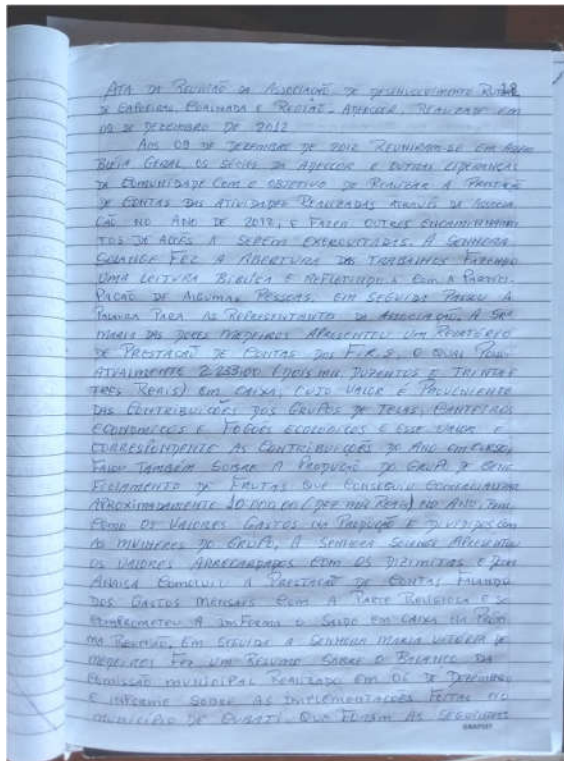 ATA DA REUNIÃO DA ASSOCIAÇÃO DE DESENVOLVIMENTO RURAL
18
DE CAPOEIRAS, COALHADA E REGIÃO - ADECCOR, REALIZADE EM
09 DE DEZEMBRO DE 2012
AOS 09 DE DEZEMBRO DE 2012 REUNIRAM-SE EM ASSEM
BLEIA GERAL OS SÓCIOS DA ADECCOR E OUTRAS LIDERANÇAS
DA COMUNIDADE COM O OBJETIVO DE REALIZAR A PRESTAÇÃO
DE CONTAS DAS ATIVIDADES REALIZADAS ATRAVÉS DA ASSOCIA
ÇÃO NO ANO DE 2012, E FAZER OUTROS ENCAMINHAMEN
TOS DE AÇÕES A SEREM EXECUTADAS. A SENHORA
SOLANGE FEZ A ABERTURA DOS TRABALHOS FAZENDO
UMA LEITURA BIBLICA E REFLETINDO-A COM A PARTICI-
PAÇÃO DE ALGUMAS PESSOAS, EM SEGUIDA PASSOU A
PALAVRA PARA AS REPRESENTANTES DA ASSOCIAÇÃO, A SRA
MARIA DAS DORES MEDEIROS APRESENTOU UM RELATÓRIO
DE PRESTAÇÃO DE CONTAS DOS F.R.S, O QUAL POSSUI
ATUALMENTE 2.233,00 (DOIS MIL DUZENTOS E TRINTA E
TRES REAIS) EM CAIXA, CUJO VALOR É PROVENIENTE
DAS CONTRIBUIÇÕES DOS GRUPOS DE TELAS, CANTEIROS
ECONOMICOS E FOGÕES ECOLOGICOS E ESSE VALOR É
CORRESPONDENTE AS CONTRIBUIÇÕES DO ANO EM CURSO,
FALOU TAMBÉM SOBRE A PRODUÇÃO DO GRUPO DE BENE
FICIAMENTO DE FRUTAS QUE CONSEGUIU COMERCIALIZAR
APROXIMADAMENTE 10.000,00 (DEZ MIL REAIS) NO ANO, BEM
COMO OS VALORES GASTOS NA PRODUÇÃO E DIVIDIDOS COM
AS MULHERES DO GRUPO, A SENHORA SOLANGE APRESENTOU
OS VALORES ARRECARDADOS COM OS DIZIMISTAS E DONA
ANAISA CONCLUIU A PRESTAÇÃO DE CONTAS FALANDO
DOS GASTOS MENSAIS COM A PARTE RELIGIOSA E SE
COMPROMETEU A INFORMA O SALDO EM CAIXA NA PRÓXI
MA REUNIÃO, EM SEGUIDA A SENHORA MARIA VITÓRIA DE
MEDEIROS FEZ UM RESUMO SOBRE O BALANÇO DA
COMISSÃO MUNICIPAL REALIZADO EM 06 DE DEZEMBRO
E INFORME SOBRE AS IMPLEMENTAÇÕES FEITAS NO
MUNICÍPIO DE CUBATI, QUE FORAM AS SEGUINTES